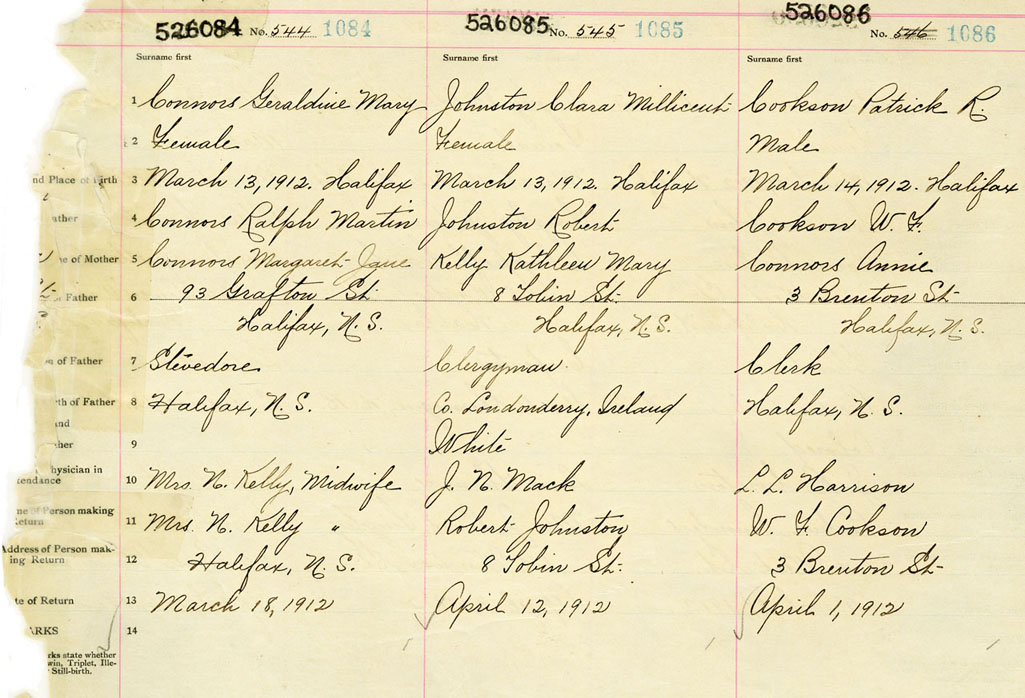 526084 No. 544 1084 526085 No. 545 1085 526086 No. 546 1086
Surname first Surname first Surname first
1 Connors Geraldine Mary Johnston Clara Millicent Cookson Patrick R.
2 Female Female Male
nd Place of Birth 3 March 13, 1912. Halifax March 13, 1912. Halifax March 14, 1912. Halifax
ather 4 Connors Ralph Martin Johnston Robert Cookson W. F.
e of Mother 5 Connors Margaret Jane Kelly Kathleen Mary Connors Annie
Father 6 93 Grafton St 8 Tobin St. 3 Brenton St
Halifax, N.S. Halifax, N.S. Halifax, N.S.
n of Father 7 Stevedore Clergyman. Clerk
th of Father 8 Halifax, N.S. Co. Londonderry, Ireland Halifax, N.S.
and
her 9 White
hysician in
tendance 10 Mrs. N. Kelly, Midwife J. N. Mack L. L. Harrison
ne of Person making
Return 11 Mrs. N. Kelly " Robert Johnston W. F. Cookson
Address of Person mak-
ing Return 12 Halifax, N.S. 8 Tobin St. 3 Brenton St
te of Return 13 March 18, 1912 April 12, 1912 April 1, 1912
ARKS 14
rks state whether
win, Triplet, Ille-
Still-birth.